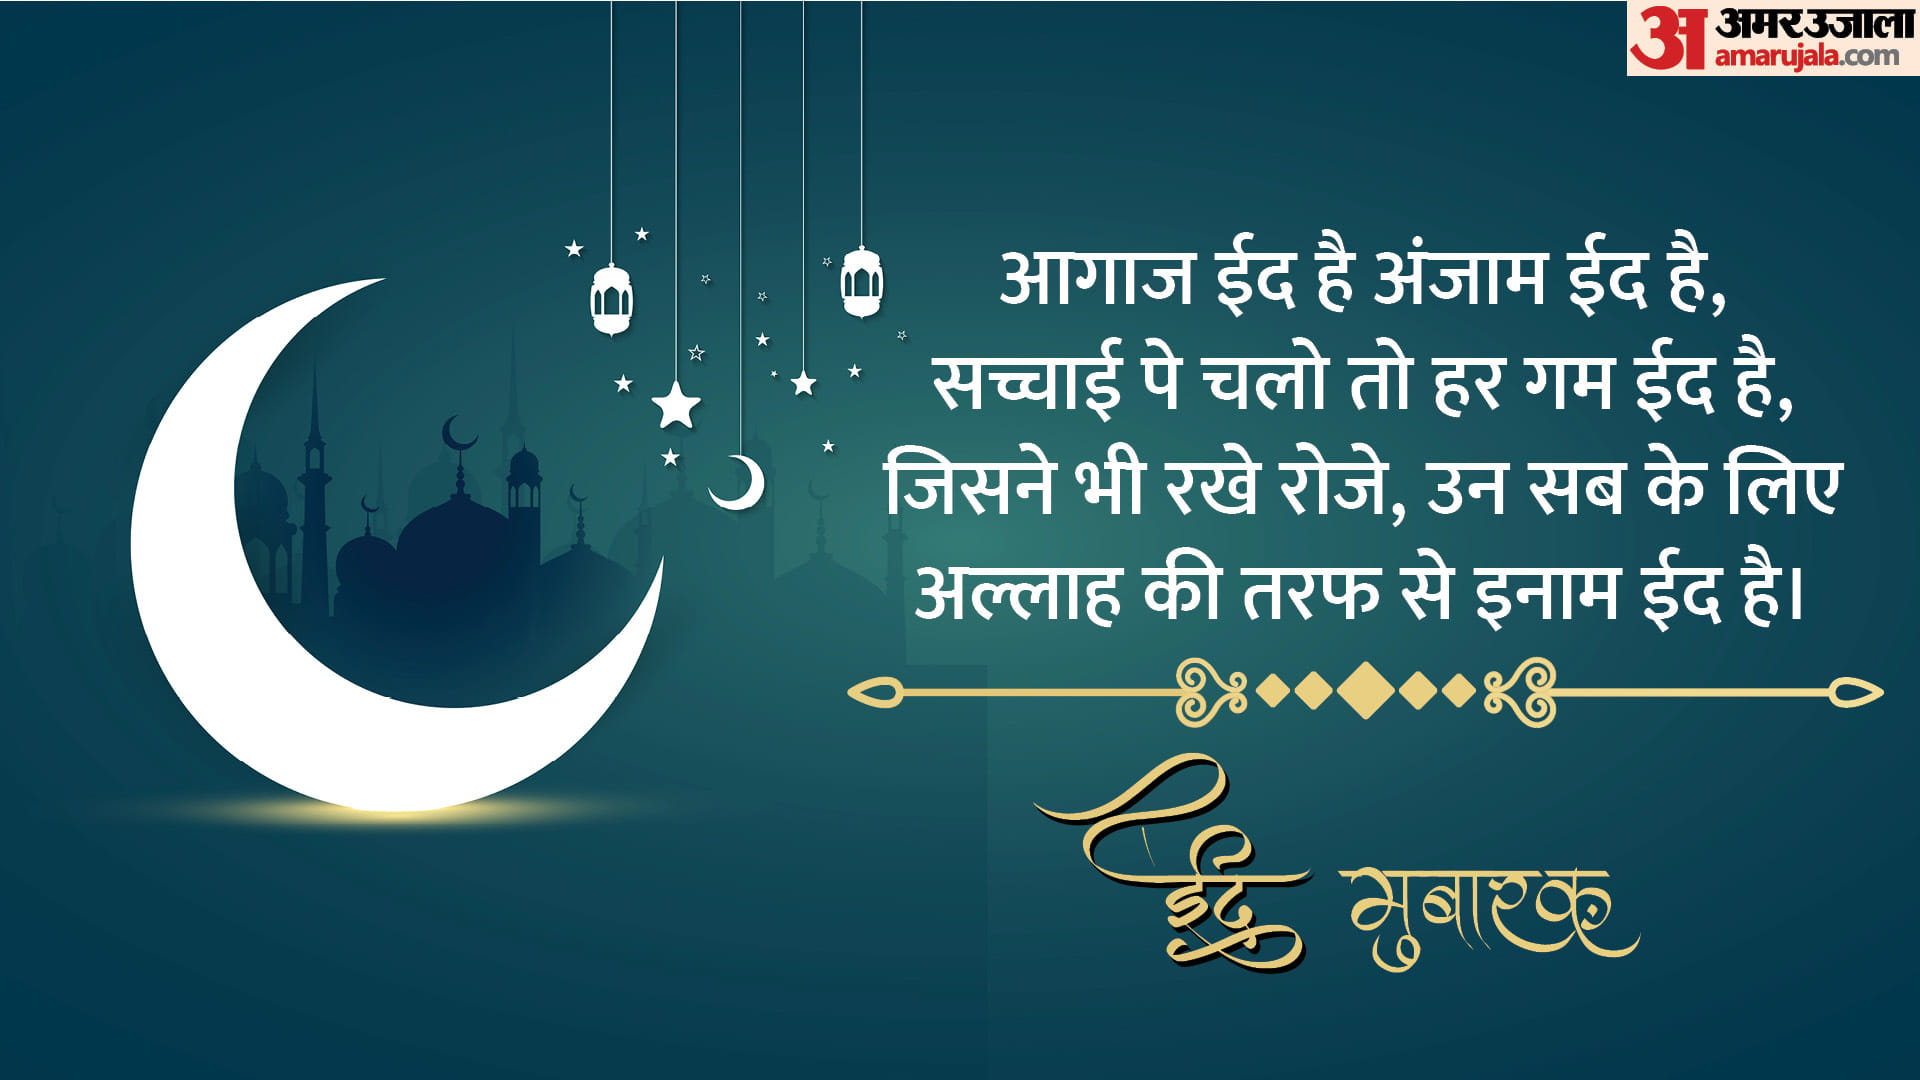 अमर उजाला
amarujala.com
आगाज ईद है अंजाम ईद है,
सच्चाई पे चलो तो हर गम ईद है,
जिसने भी रखे रोजे, उन सब के लिए
अल्लाह की तरफ से इनाम ईद है।
ईद मुबारक